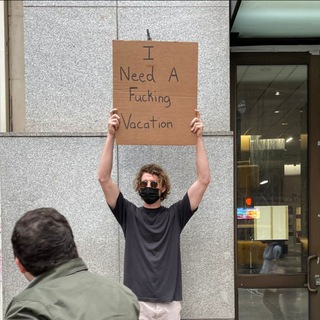 I
Need A
Fucking
Vacation